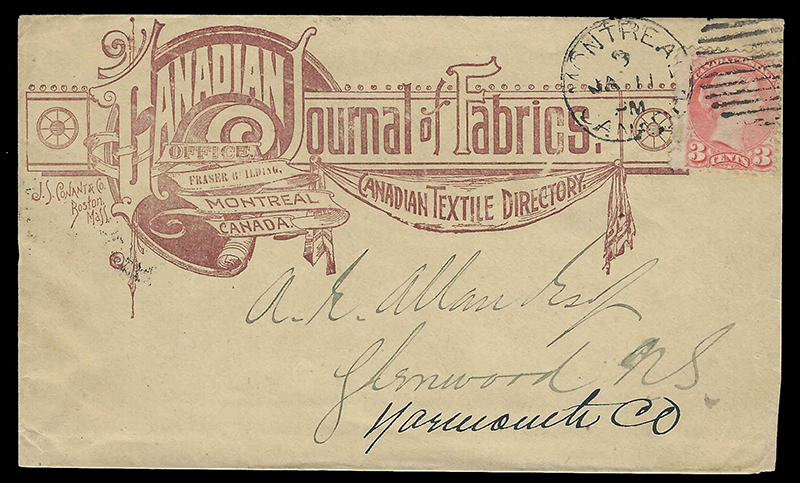 CANADIAN
Journal of Fabrics.
OFFICE,
FRASER BUILDING.
MONTREAL
CANADA.
CANADIAN TEXTILE DIRECTORY.
J. S. CONANT & CO.
BOSTON,
MASS.
MONTREAL
3
JA 11
PM
CANADA
3 CENTS 3
A. E. Allan Esq
Glenwood N.S.
Yarmouth CO